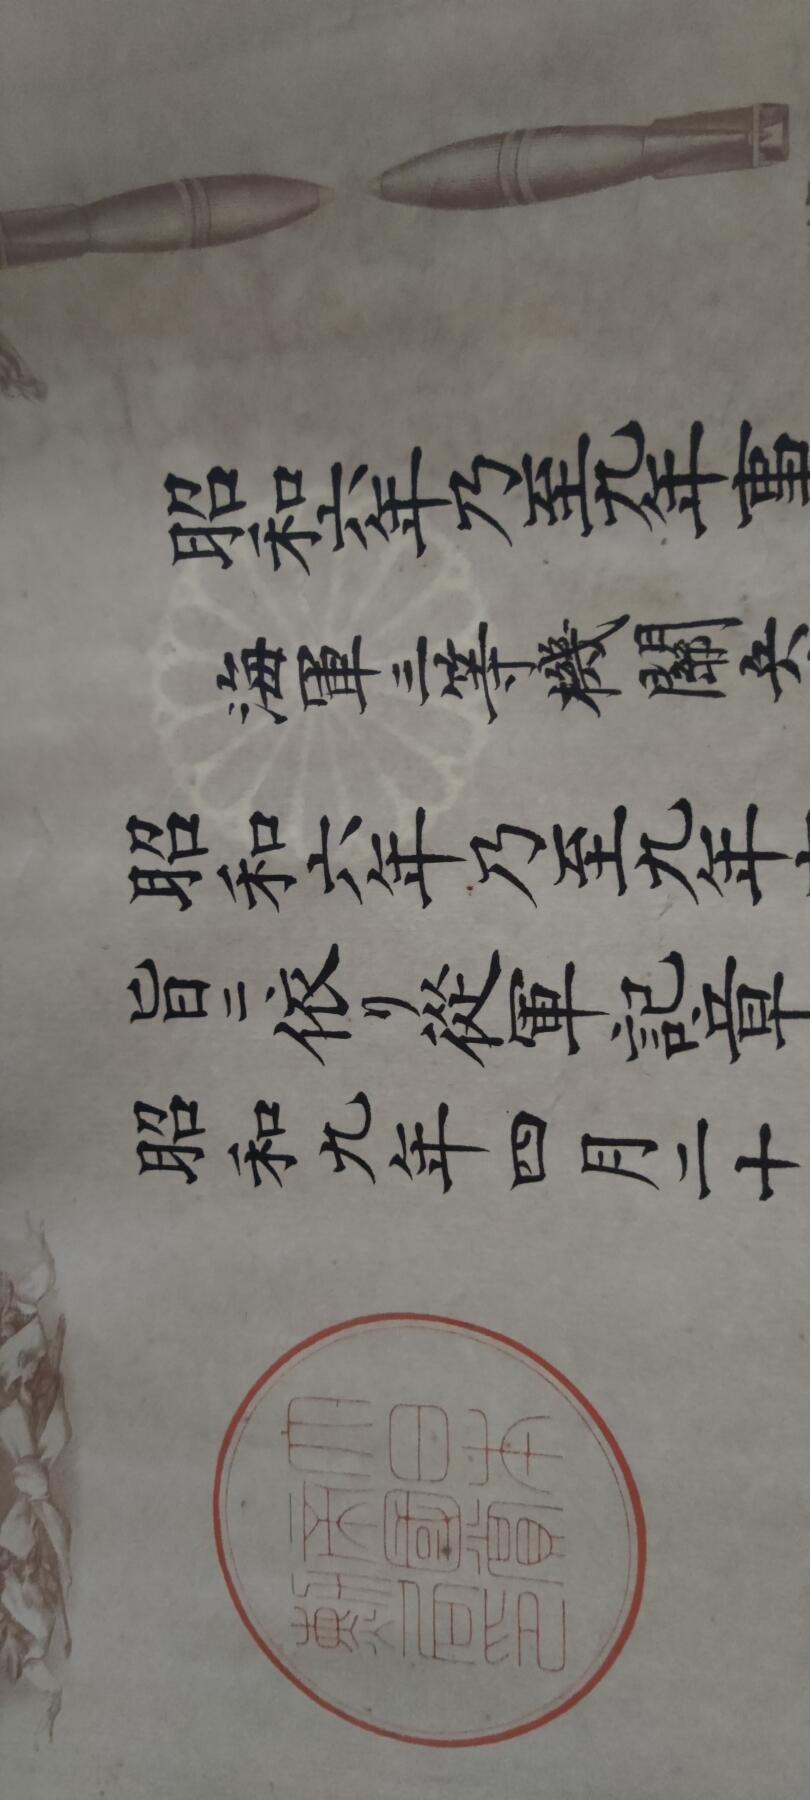 昭和六年乃至九年事
海軍三等機關兵
昭和六年乃至九年
旨ニ依リ從軍記章
昭和九年四月二十
大日本
帝國賞
勳局印